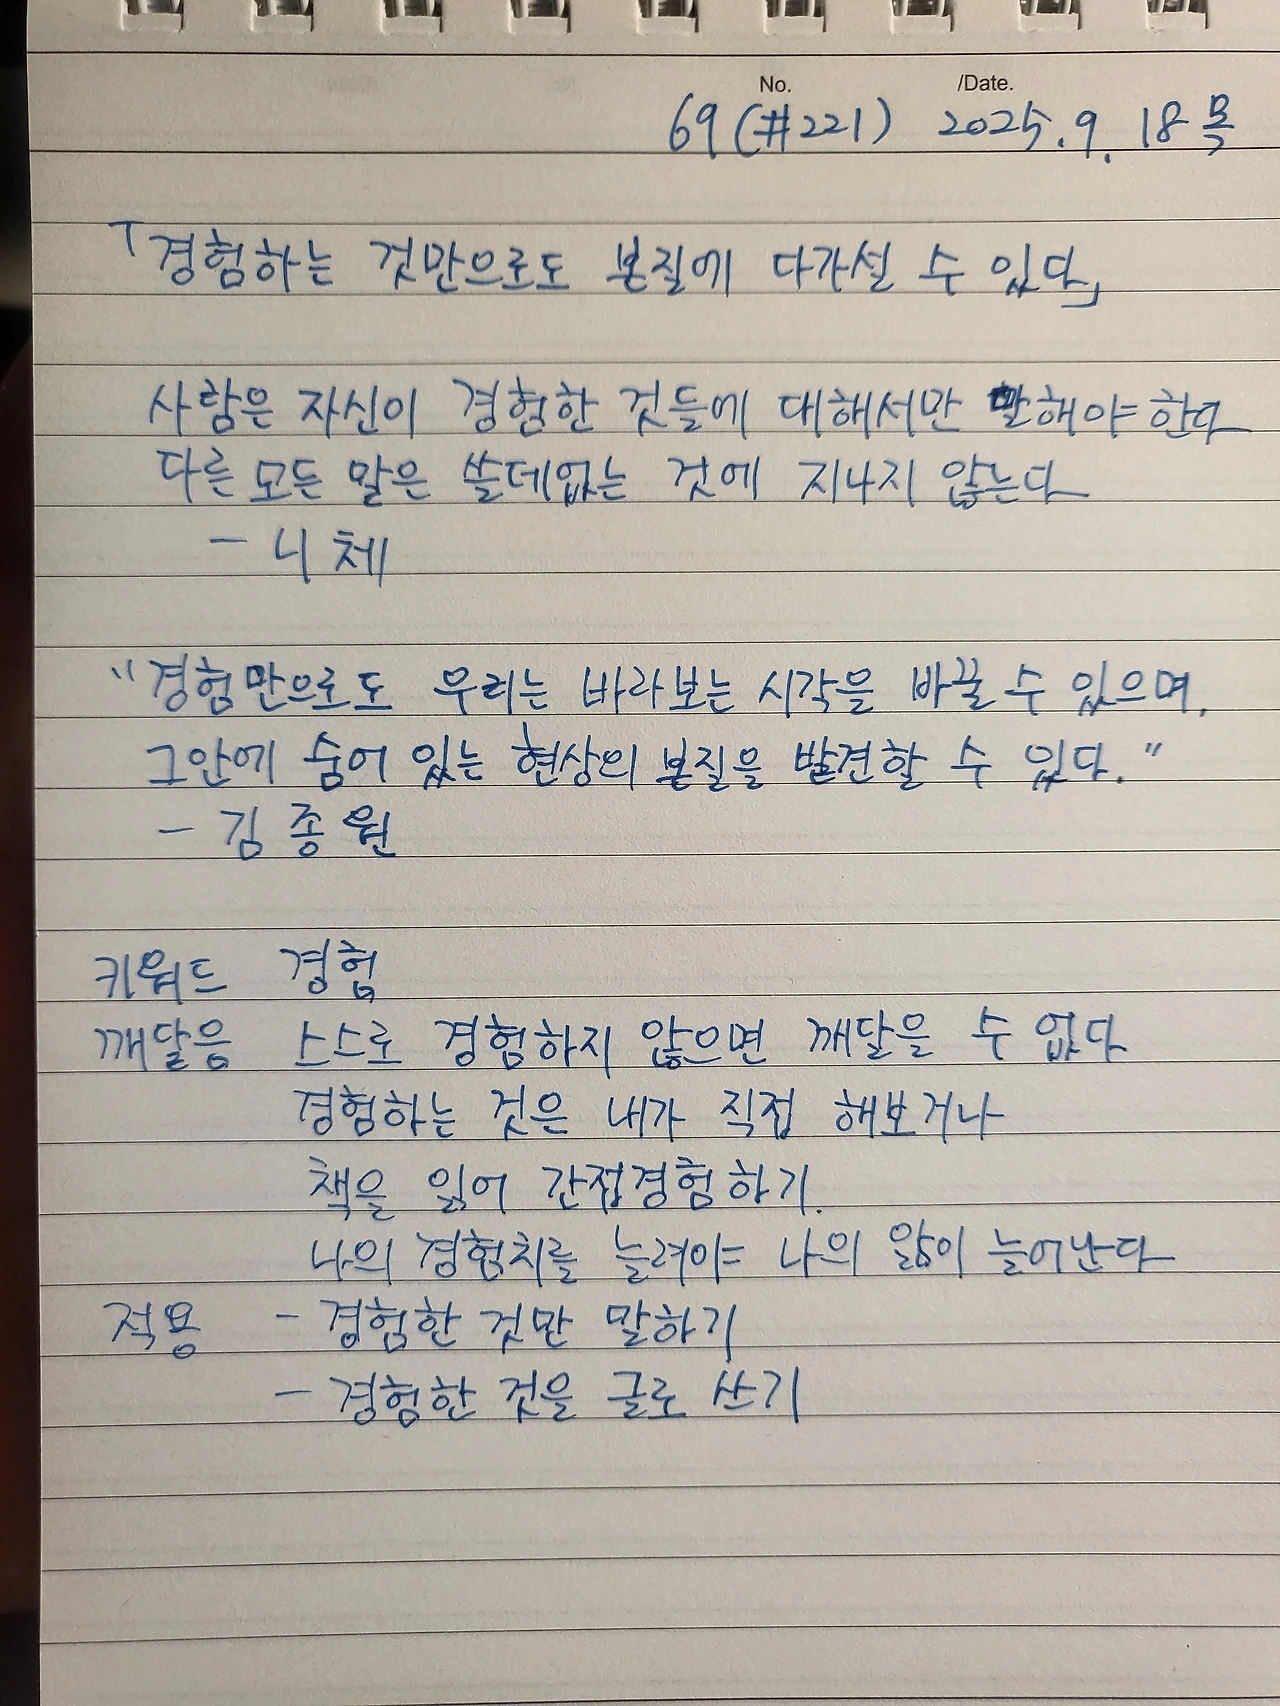 No. /Date.
69 (#221) 2025.9.18 목
「경험하는 것만으로도 본질에 다가설 수 있다」
사람은 자신이 경험한 것들에 대해서만 말해야 한다
다른 모든 말은 쓸데없는 것에 지나지 않는다
- 니체
"경험만으로도 우리는 바라보는 시각을 바꿀 수 있으며,
그안에 숨어 있는 현상의 본질을 발견할 수 있다."
- 김종원
키워드 경험
깨달음 스스로 경험하지 않으면 깨달을 수 없다
경험하는 것은 내가 직접 해보거나
책을 읽어 간접경험하기.
나의 경험치를 늘려야 나의 앎이 늘어난다
적용 - 경험한 것만 말하기
- 경험한 것을 글로 쓰기